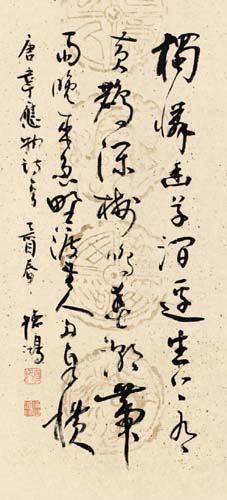 獨憐幽草澗邊生上有
黃鸝深樹鳴春潮帶
雨晚來急野渡無人舟自橫
唐韋應物詩 乙酉春